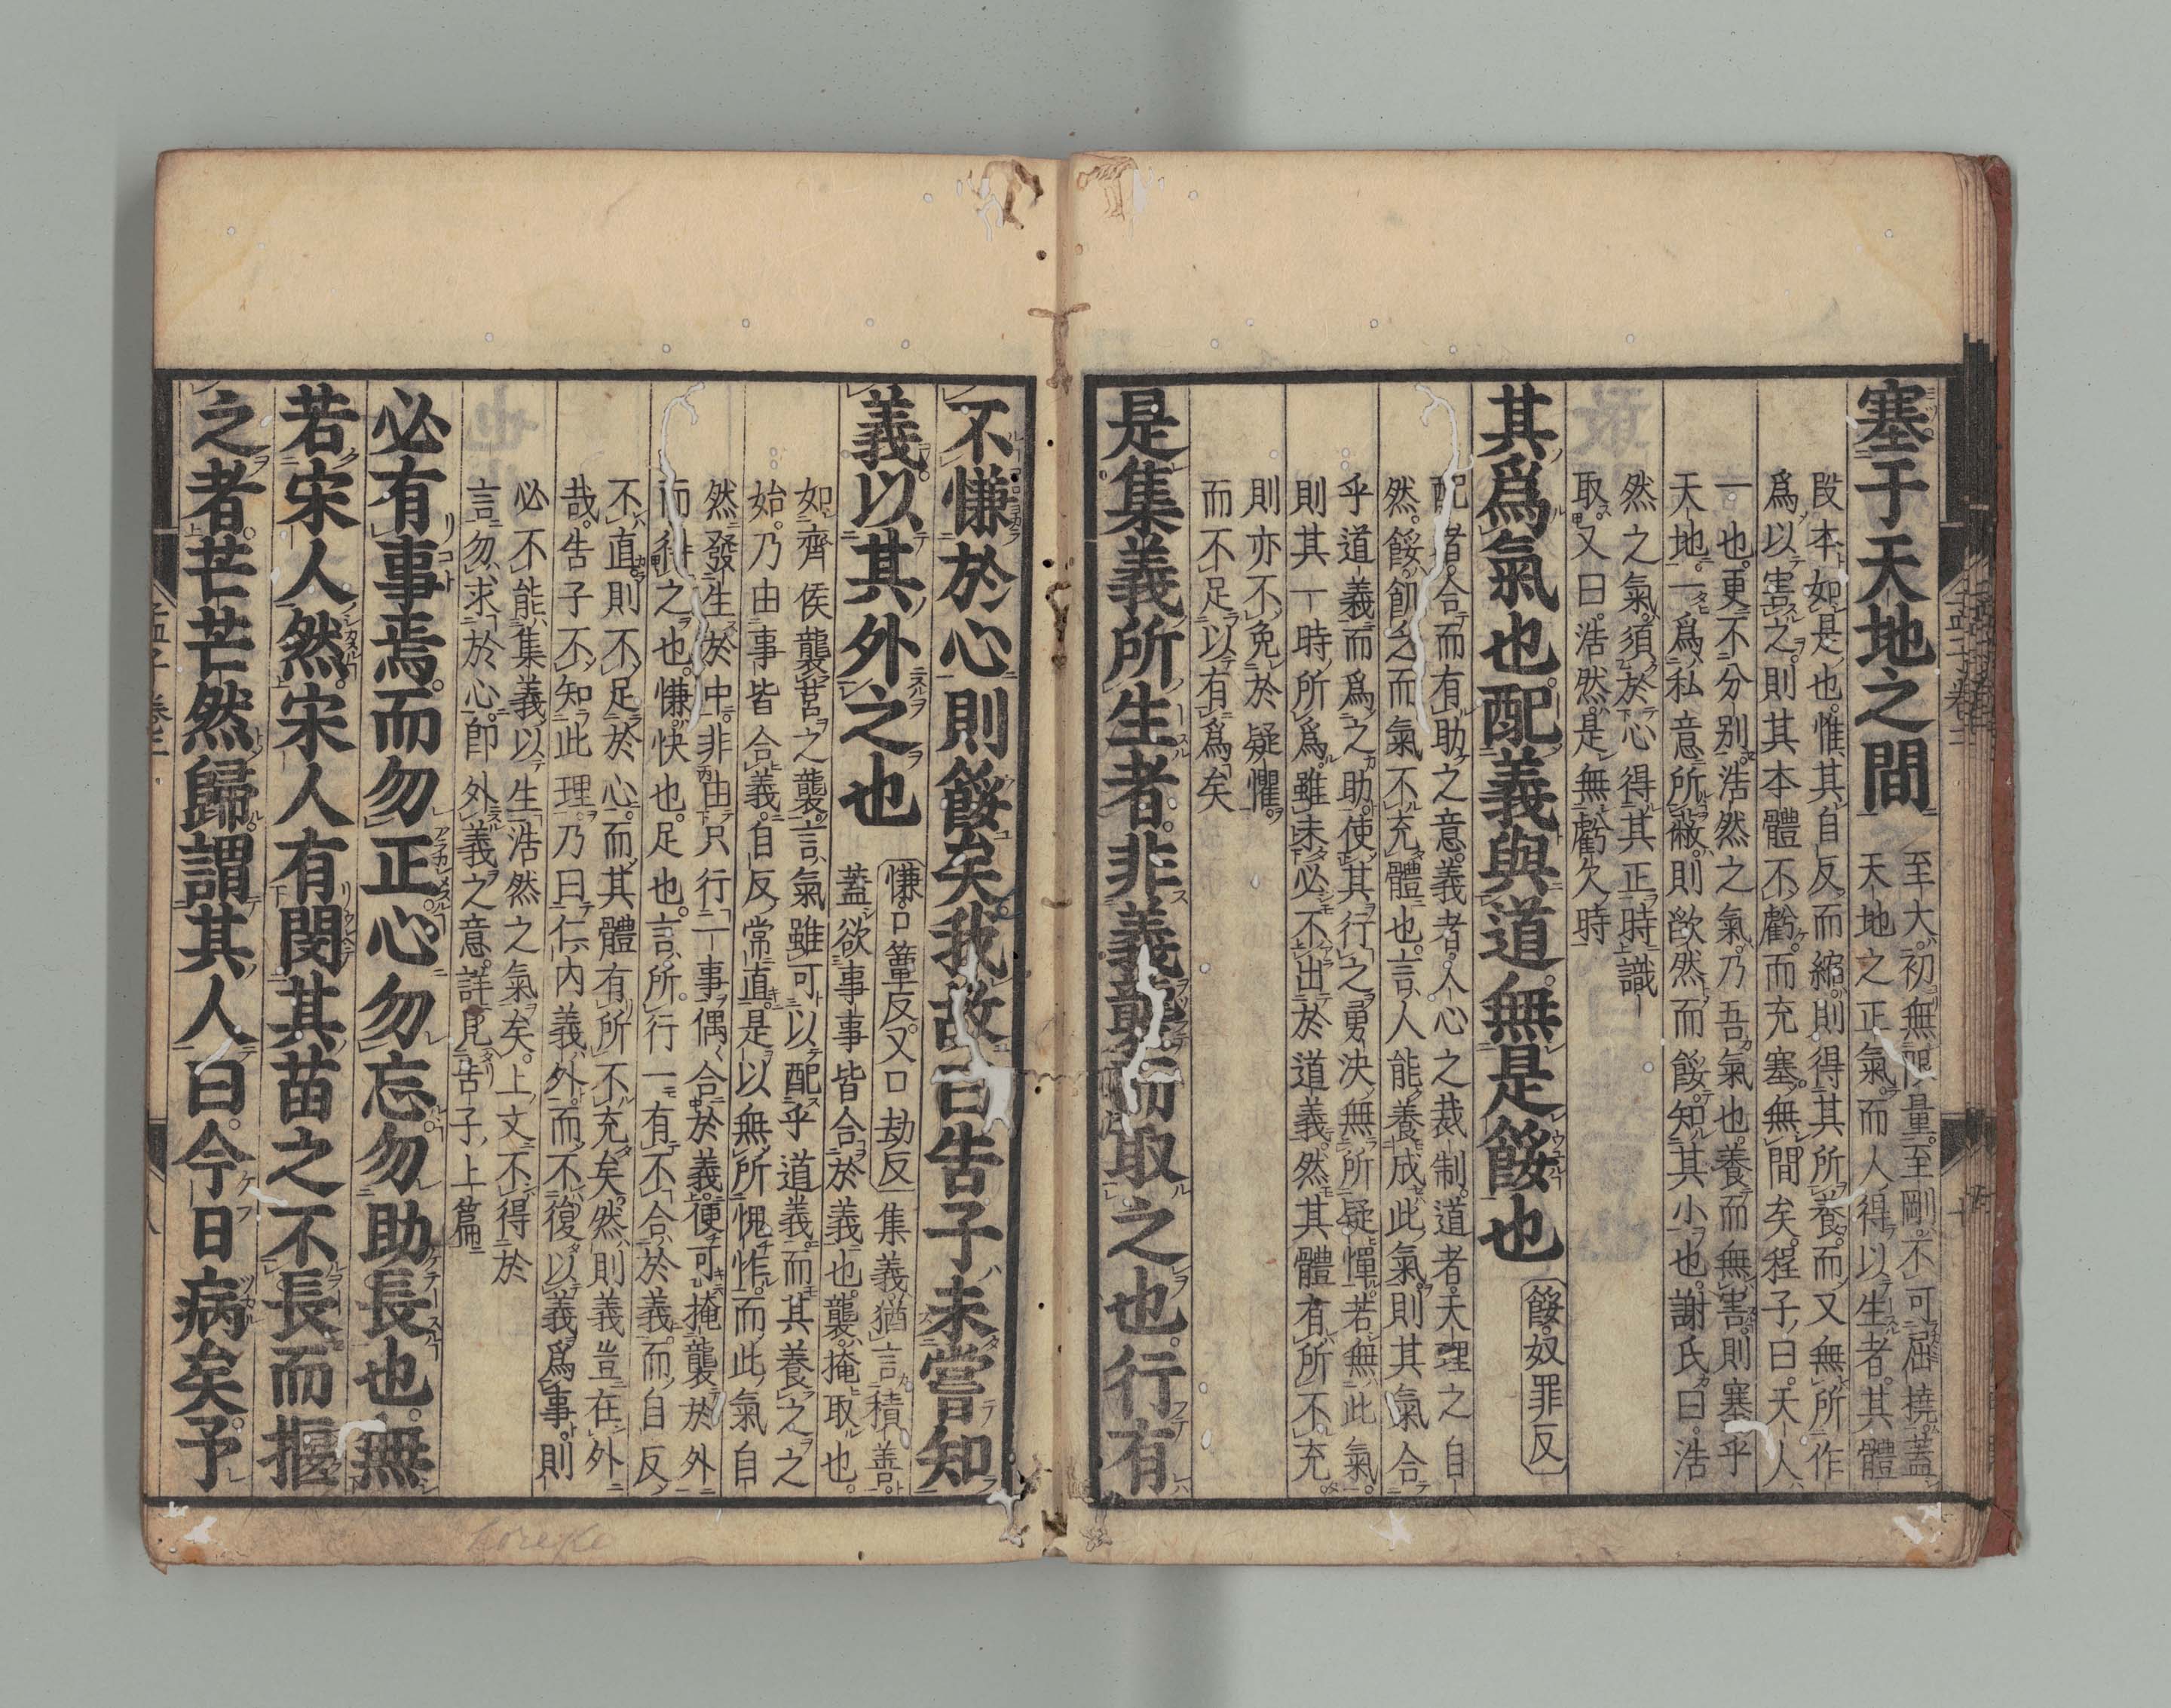 塞于天地之間
至大初無限量至剛不可屈撓蓋
天地之正氣而人得以生者其體
段本如是也惟其自反而縮則得其所養而又無所作
爲以害之則其本體不虧而充塞無間矣程子曰天人
一也更不分別浩然之氣乃吾氣也養而無害則塞乎
天地一爲私意所蔽則欿然而餒知其小也謝氏曰浩
然之氣須於心得其正時識
取又曰浩然是無虧欠時
其爲氣也配義與道無是餒也
餒奴罪反
配者合而有助之意義者人心之裁制道者天理之自
然餒飢乏而氣不充體也言人能養成此氣則其氣合
乎道義而爲之助使其行之勇決無所疑憚若無此氣
則其一時所爲雖未必不出於道義然其體有所不充
則亦不免於疑懼
而不足以有爲矣
是集義所生者非義襲而取之也行有
不慊於心則餒矣我故曰告子未嘗知
義以其外之也
慊口簟反又口劫反集義猶言積善
蓋欲事事皆合於義也襲掩取也
如齊侯襲莒之襲言氣雖可以配乎道義而其養之之
始乃由事皆合義自反常直是以無所愧怍而此氣自
然發生於中非由只行一事偶合於義便可掩襲於外
而得之也慊快也足也言所行一有不合於義而自反
不直則不足於心而其體有所不充矣然則義豈在外
哉告子不知此理乃曰仁內義外而不復以義爲事則
必不能集義以生浩然之氣矣上文不得於
言勿求於心卽外義之意詳見告子上篇
必有事焉而勿正心勿忘勿助長也無
若宋人然宋人有閔其苗之不長而揠
之者芒芒然歸謂其人曰今日病矣予
孟子卷三